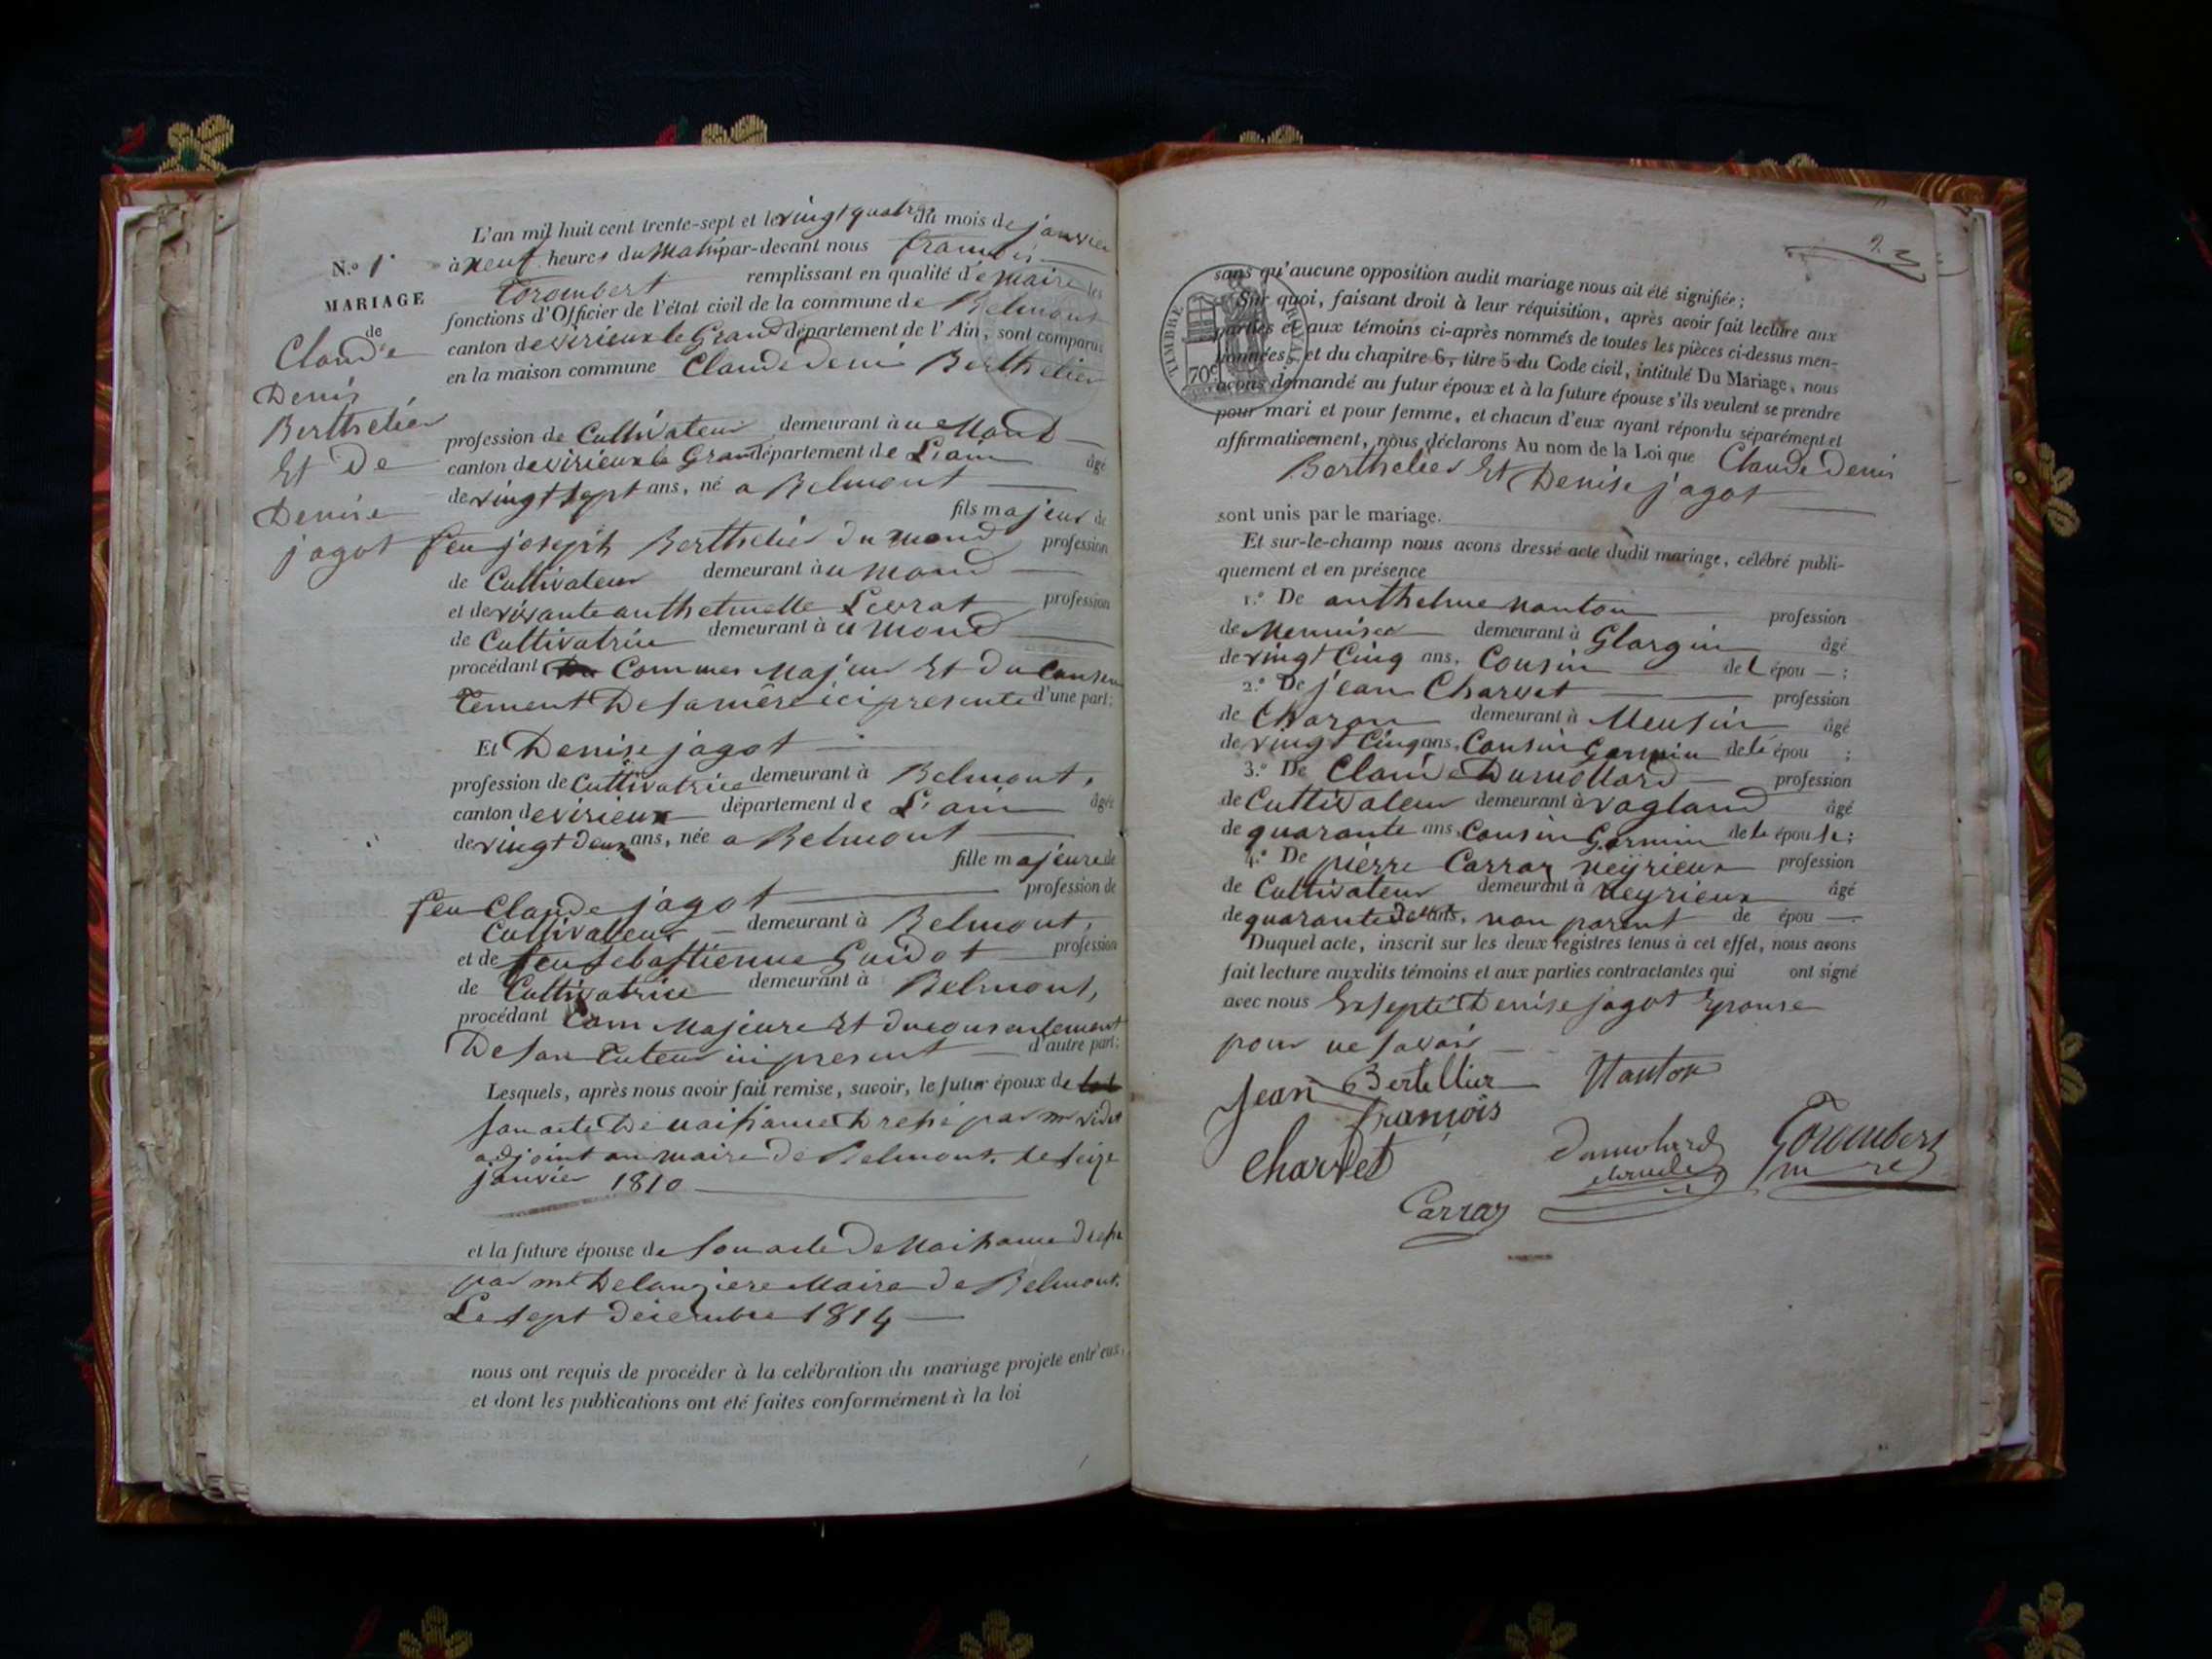 L'an mil huit cent trente-sept et le vingt quatre du mois de janvier
N.º 1er à neuf heures du Matin par-devant nous francois
MARIAGE
Torombert remplissant en qualité de maire les
fonctions d'Officier de l'état civil de la commune de Belmont
canton de virieux le Grand département de l'Ain, sont comparus
en la maison commune Claude deni Berthelier
de
Claude
Denis
Berthelier
Et De
Denise
jagot
profession de Cultivateur demeurant à u Mond
canton de virieux le Grand département de L'ain âgé
de vingt sept ans, né a Belmont
fils majeur de
feu joseph Berthelier du mond profession
de Cultivateur demeurant à u mond
et de vivante anthelmette Levrat profession
de Cultivatrice demeurant à u mond
procédant Comme Majeur Et du Consen
tement De sa mère ici presente d'une part;
Et Denise jagot
profession de Cultivatrice demeurant à Belmont,
canton de virieux département de L'ain âgée
de vingt deux ans, née a Belmont
fille majeure de
feu Claude jagot profession de
Cultivateur demeurant à Belmont,
et de feu Sebastienne Guidot profession
de Cultivatrice demeurant à Belmont,
procédant Com Majeure Et du consentement
De son tuteur ici present d'autre part;
Lesquels, après nous avoir fait remise, savoir, le futur époux de
son acte De naissance par mr
adjoint au maire De Belmont. le seize
janvier 1810
et la future épouse de son acte De Naissance
par mr Delangiere Maire de Belmont.
Le sept decembre 1814
nous ont requis de procéder à la celébration du mariage projete entr'eux,
et dont les publications ont été faites conformément à la loi
2.
TIMBRE ROYAL
70c
sans qu'aucune opposition audit mariage nous ait été signifiée;
Sur quoi, faisant droit à leur réquisition, après avoir fait lecture aux
parties et aux témoins ci-après nommés de toutes les pièces ci-dessus men-
tionnées, et du chapitre 6, titre 5 du Code civil, intitulé Du Mariage, nous
avons demandé au futur époux et à la future épouse s'ils veulent se prendre
pour mari et pour femme, et chacun d'eux ayant répondu séparément et
affirmativement, nous déclarons Au nom de la Loi que Claude Denis
Berthelier Et Denise jagot
sont unis par le mariage.
Et sur-le-champ nous avons dressé acte dudit mariage, célébré publi-
quement et en présence
1.º De anthelme nanton profession
de Menuisier demeurant à Glargin âgé
de vingt Cinq ans, Cousin de l épou ;
2.º De jean Charvet profession
de Charon demeurant à Meusin âgé
de vingt Cinq ans, Cousin Germin de lé épou ;
3.º De Claude Dumollard profession
de Cultivateur demeurant à vogland âgé
de quarante ans, Cousin Germin de le épou se;
4.º De pierre Carraz neyrieux profession
de Cultivateur demeurant à neyrieux âgé
de quarante deux ans, non parent de épou .
Duquel acte, inscrit sur les deux registres tenus à cet effet, nous avons
fait lecture auxdits témoins et aux parties contractantes qui ont signé
avec nous Exsepté Denise jagot Epouse
pour ne savoir
Jean Bertellier Nanton
francois
Charvet Dumolard Torombert
claude m re
Carraz